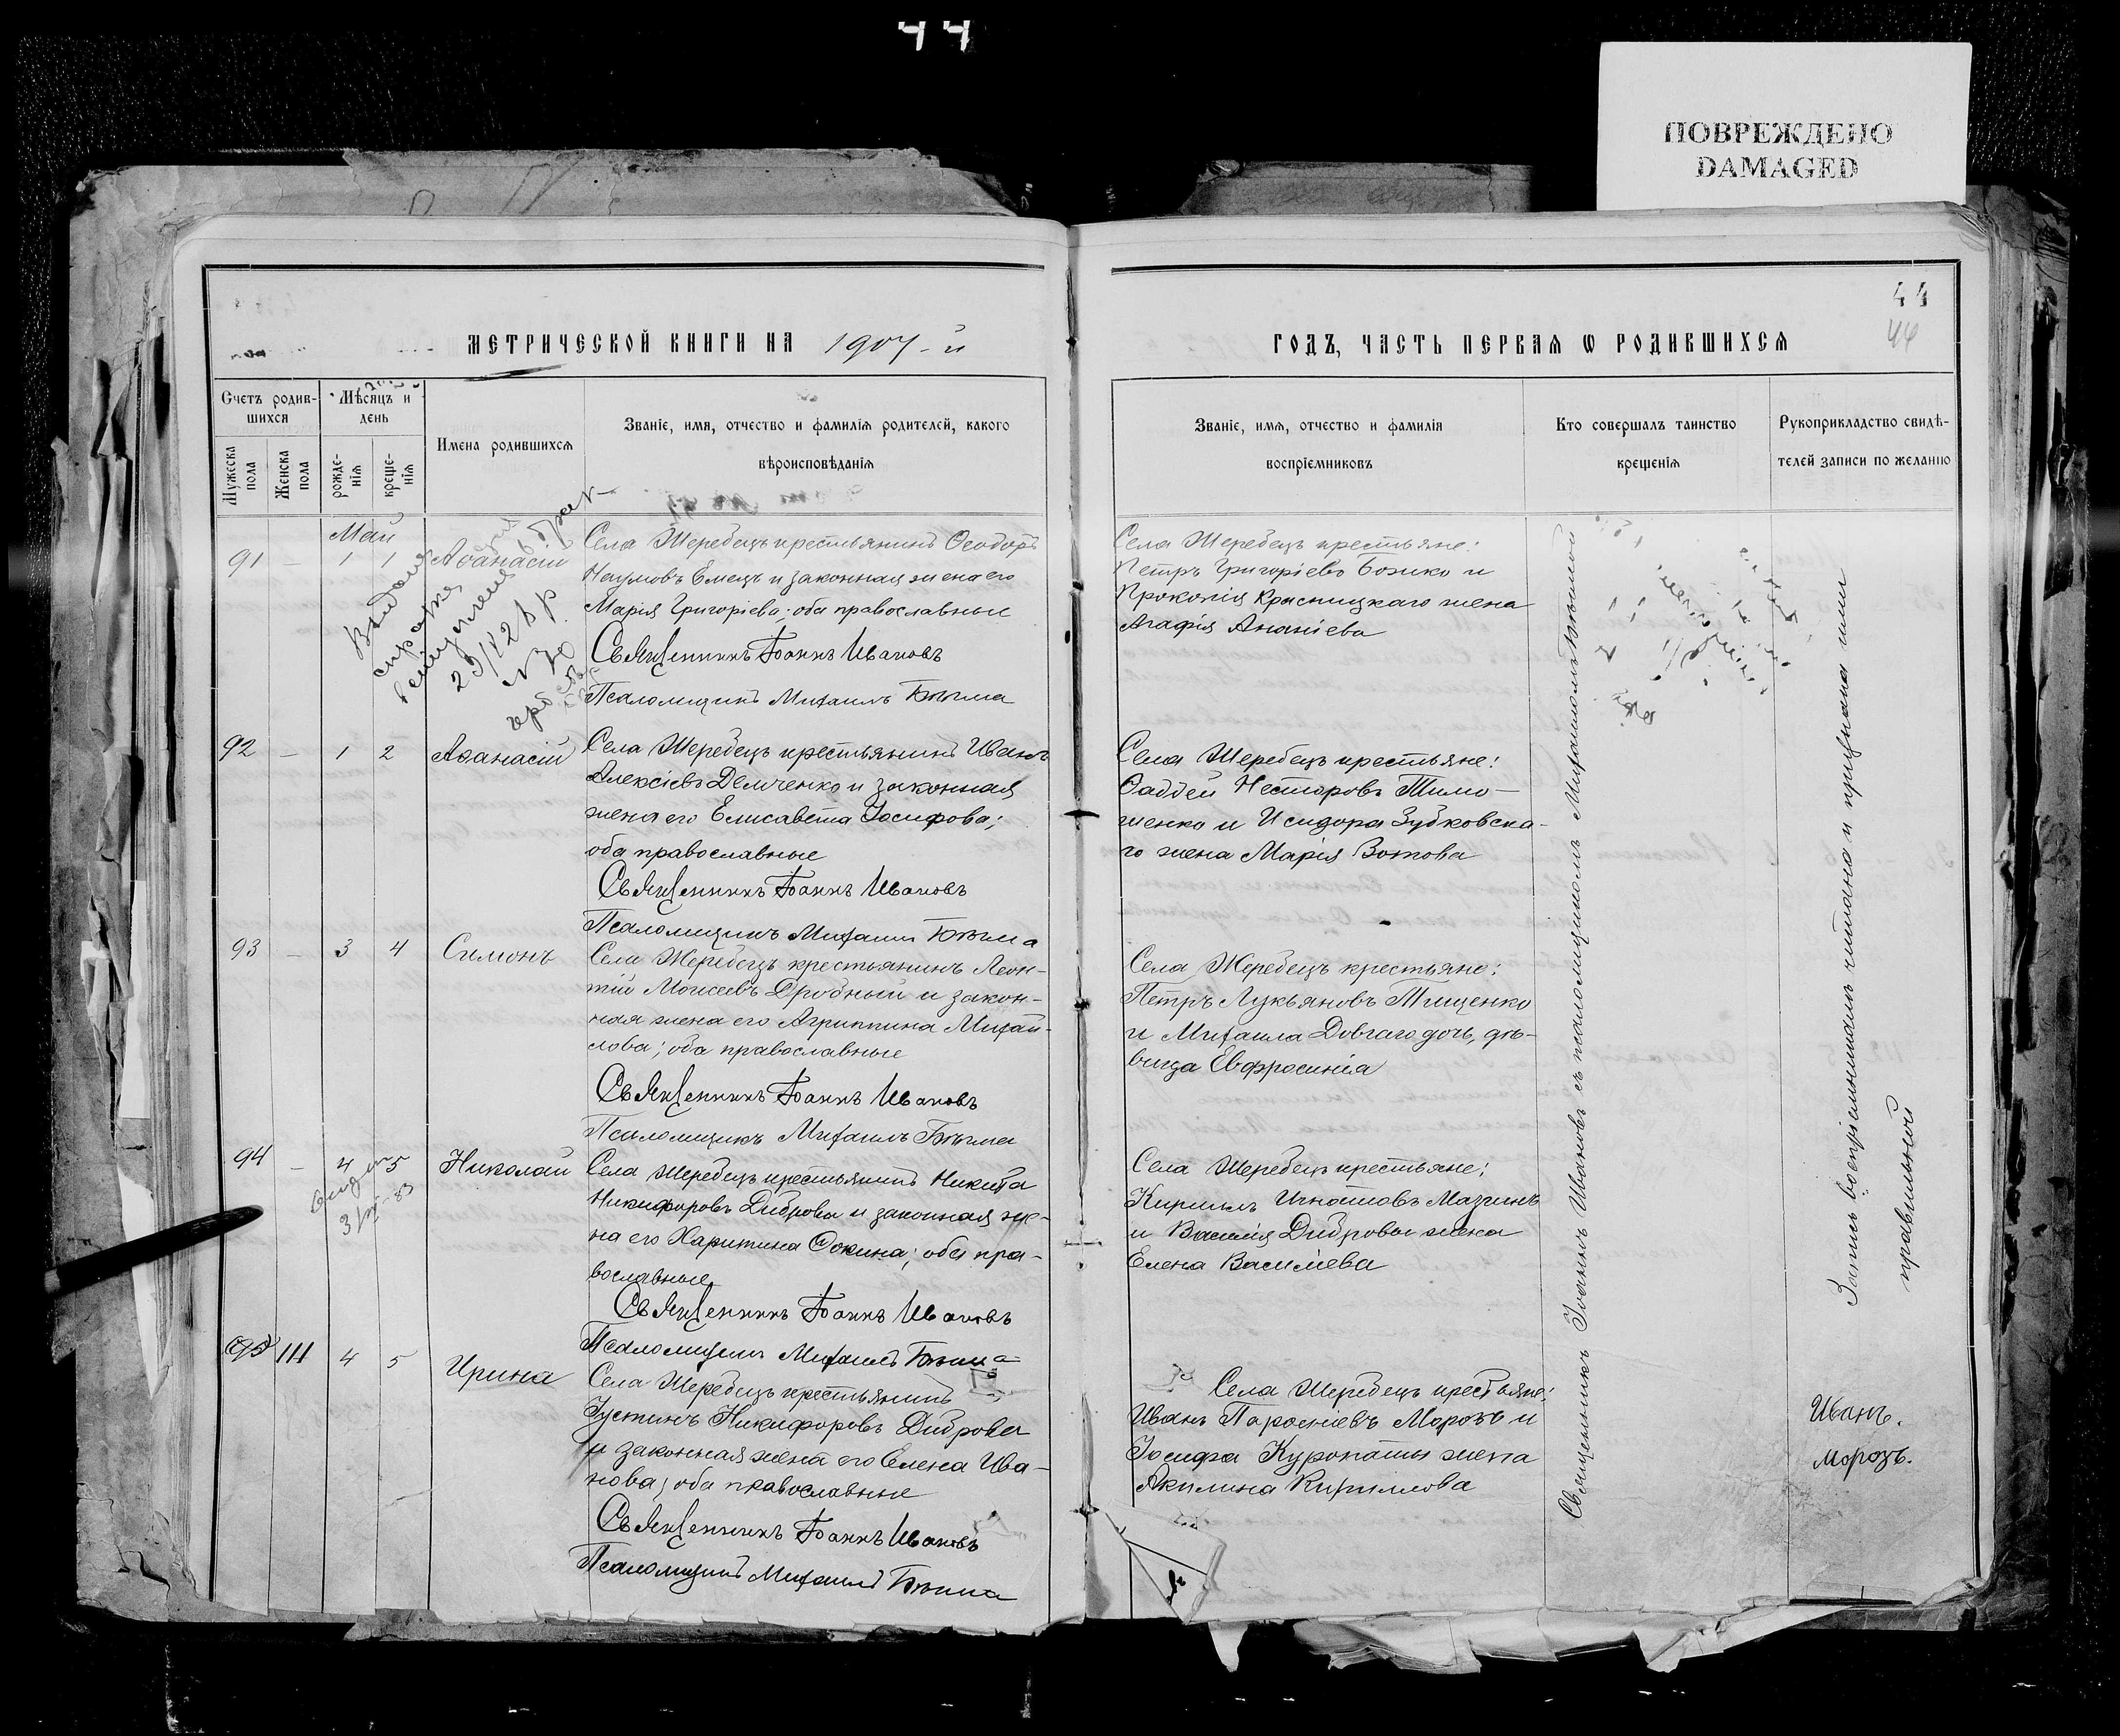 44
ПОВРЕЖДЕНО
DAMAGED
МЕТРИЧЕСКОЙ КНИГИ НА 1907-й
Счетъ родив-
шихся
Мѣсяцъ и
день
Мужеска пола
Женска пола
рожде-
нія
креще-
нія
Имена родившихся
Званіе, имя, отчество и фамилія родителей, какого
вѣроисповѣданія
Май
91 – 1 1 Аѳанасій
Села Жеребецъ крестьянинъ Ѳеодоръ
Наумовъ Емецъ и законная жена его
Марія Григоріева; оба православные
Священникъ Іоаннъ Ивановъ
Псаломщикъ Михаилъ Бѣьма
Выдана
справка
29/X 28 р.
N 70
92 – 1 2 Аѳанасій
Села Жеребецъ крестьянинъ Иванъ
Алексіевъ Демченко и законная
жена его Елисавета Іосифова;
оба православные
Священникъ Іоаннъ Ивановъ
Псаломщикъ Михаилъ
93 – 3 4 Симонъ
Села Жеребецъ крестьянинъ Леон-
тій Моисеевъ Дробный и закон-
ная жена его Агриппина Михаи-
лова; оба православные
Священникъ Іоаннъ Ивановъ
Псаломщикъ Михаилъ
94 – 4 5 Николай
Села Жеребецъ крестьянинъ Никита
Никифоровъ Диброва и законная же-
на его Харитина Ѳокина; оба пра-
вославные
Священникъ Іоаннъ Ивановъ
Псаломщикъ Михаилъ
95 111 4 5 Ирина
Села Жеребецъ крестьянинъ
Іустинъ Никифоровъ Диброва
и законная жена его Елена Ива-
нова; оба православные
Священникъ Іоаннъ Ивановъ
Псаломщикъ Михаилъ
44
44
ГОДЪ, ЧАСТЬ ПЕРВАЯ Ѡ РОДИВШИХСЯ
Званіе, имя, отчество и фамилія
воспріемниковъ
Кто совершалъ таинство
крещенія
Рукоприкладство свидѣ-
телей записи по желанію
Села Жеребецъ крестьяне:
Петръ Григоріевъ Божко и
Прокопія Красницкаго жена
Агафія Ананіева
Села Жеребецъ крестьяне:
Ѳаддей Несторовъ Тимо-
шенко и Исидора Зубковска-
го жена Марія Зотова
Села Жеребецъ крестьяне:
Петръ Лукьяновъ Тищенко
и Михаила Довгаго дочь, дѣ-
вица Евфросинія
Села Жеребецъ крестьяне:
Кириллъ Игнатовъ Мазинъ
и Василія Дибровы жена
Елена Василіева
Села Жеребецъ крестьяне:
Иванъ Парѳеніевъ Морозъ и
Іосифа Куропаты жена
Акилина Кириллова
Священникъ Іоаннъ Ивановъ съ псаломщикомъ Михаиломъ
Запись воспріемникамъ читана и признана ими
правильной
Иванъ.
Морозъ.